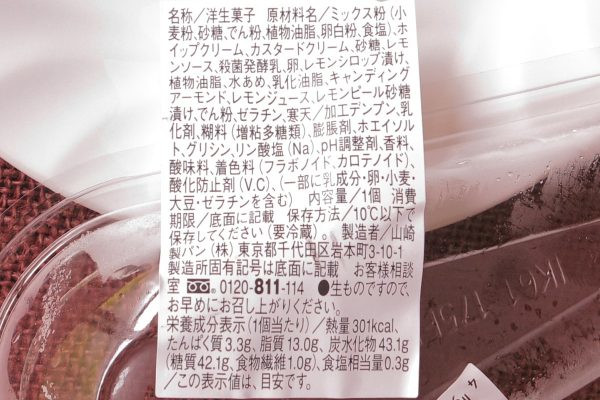 名称／洋生菓子 原材料名／ミックス粉(小
麦粉、砂糖、でん粉、植物油脂、卵白粉、食塩)、ホ
イップクリーム、カスタードクリーム、砂糖、レモ
ンソース、殺菌発酵乳、卵、レモンシロップ漬け、
植物油脂、水あめ、乳化油脂、キャンディング
アーモンド、レモンジュース、レモンピール砂糖
漬け、でん粉、ゼラチン、寒天／加工デンプン、乳
化剤、糊料(増粘多糖類)、膨脹剤、ホエイソル
ト、グリシン、リン酸塩(Na)、pH調整剤、香料、
酸味料、着色料(フラボノイド、カロテノイド)、
酸化防止剤(V.C)、(一部に乳成分・卵・小麦・
大豆・ゼラチンを含む) 内容量／1個 消費
期限／底面に記載 保存方法／10℃以下で
保存してください(要冷蔵)。 製造者／山崎
製パン(株) 東京都千代田区岩本町3-10-1
製造所固有記号は底面に記載 お客様相談
室 0120-811-114 ●生ものですので、
お早めにお召し上がりください。
栄養成分表示(1個当たり)／熱量301kcal、
たんぱく質3.3g、脂質13.0g、炭水化物43.1g
(糖質42.1g、食物繊維1.0g)、食塩相当量0.3g
／この表示値は、目安です。